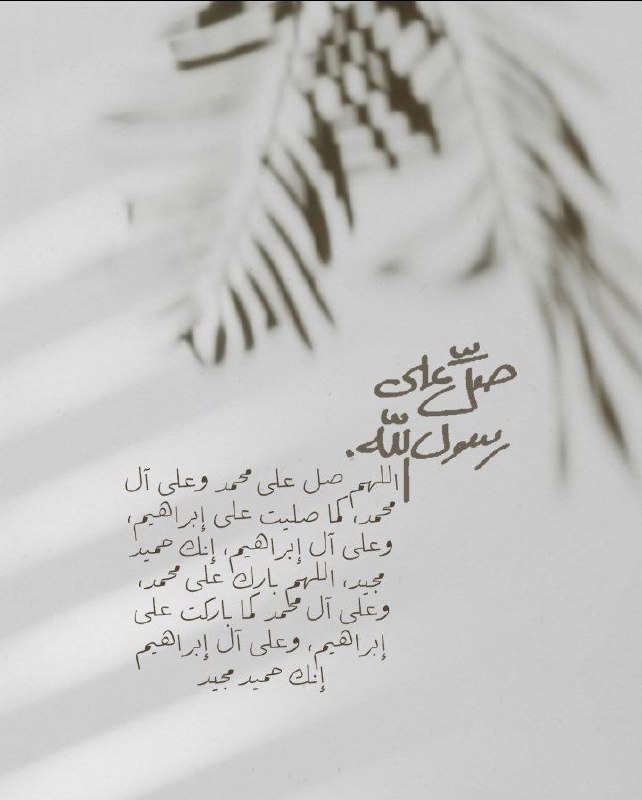 صلِّ على
رسول اللّٰه.
اللهم صل على محمد وعلى آل
محمد، كما صليت على إبراهيم،
وعلى آل إبراهيم، إنك حميد
مجيد، اللهم بارك على محمد،
وعلى آل محمد كما باركت على
إبراهيم، وعلى آل إبراهيم
إنك حميد مجيد